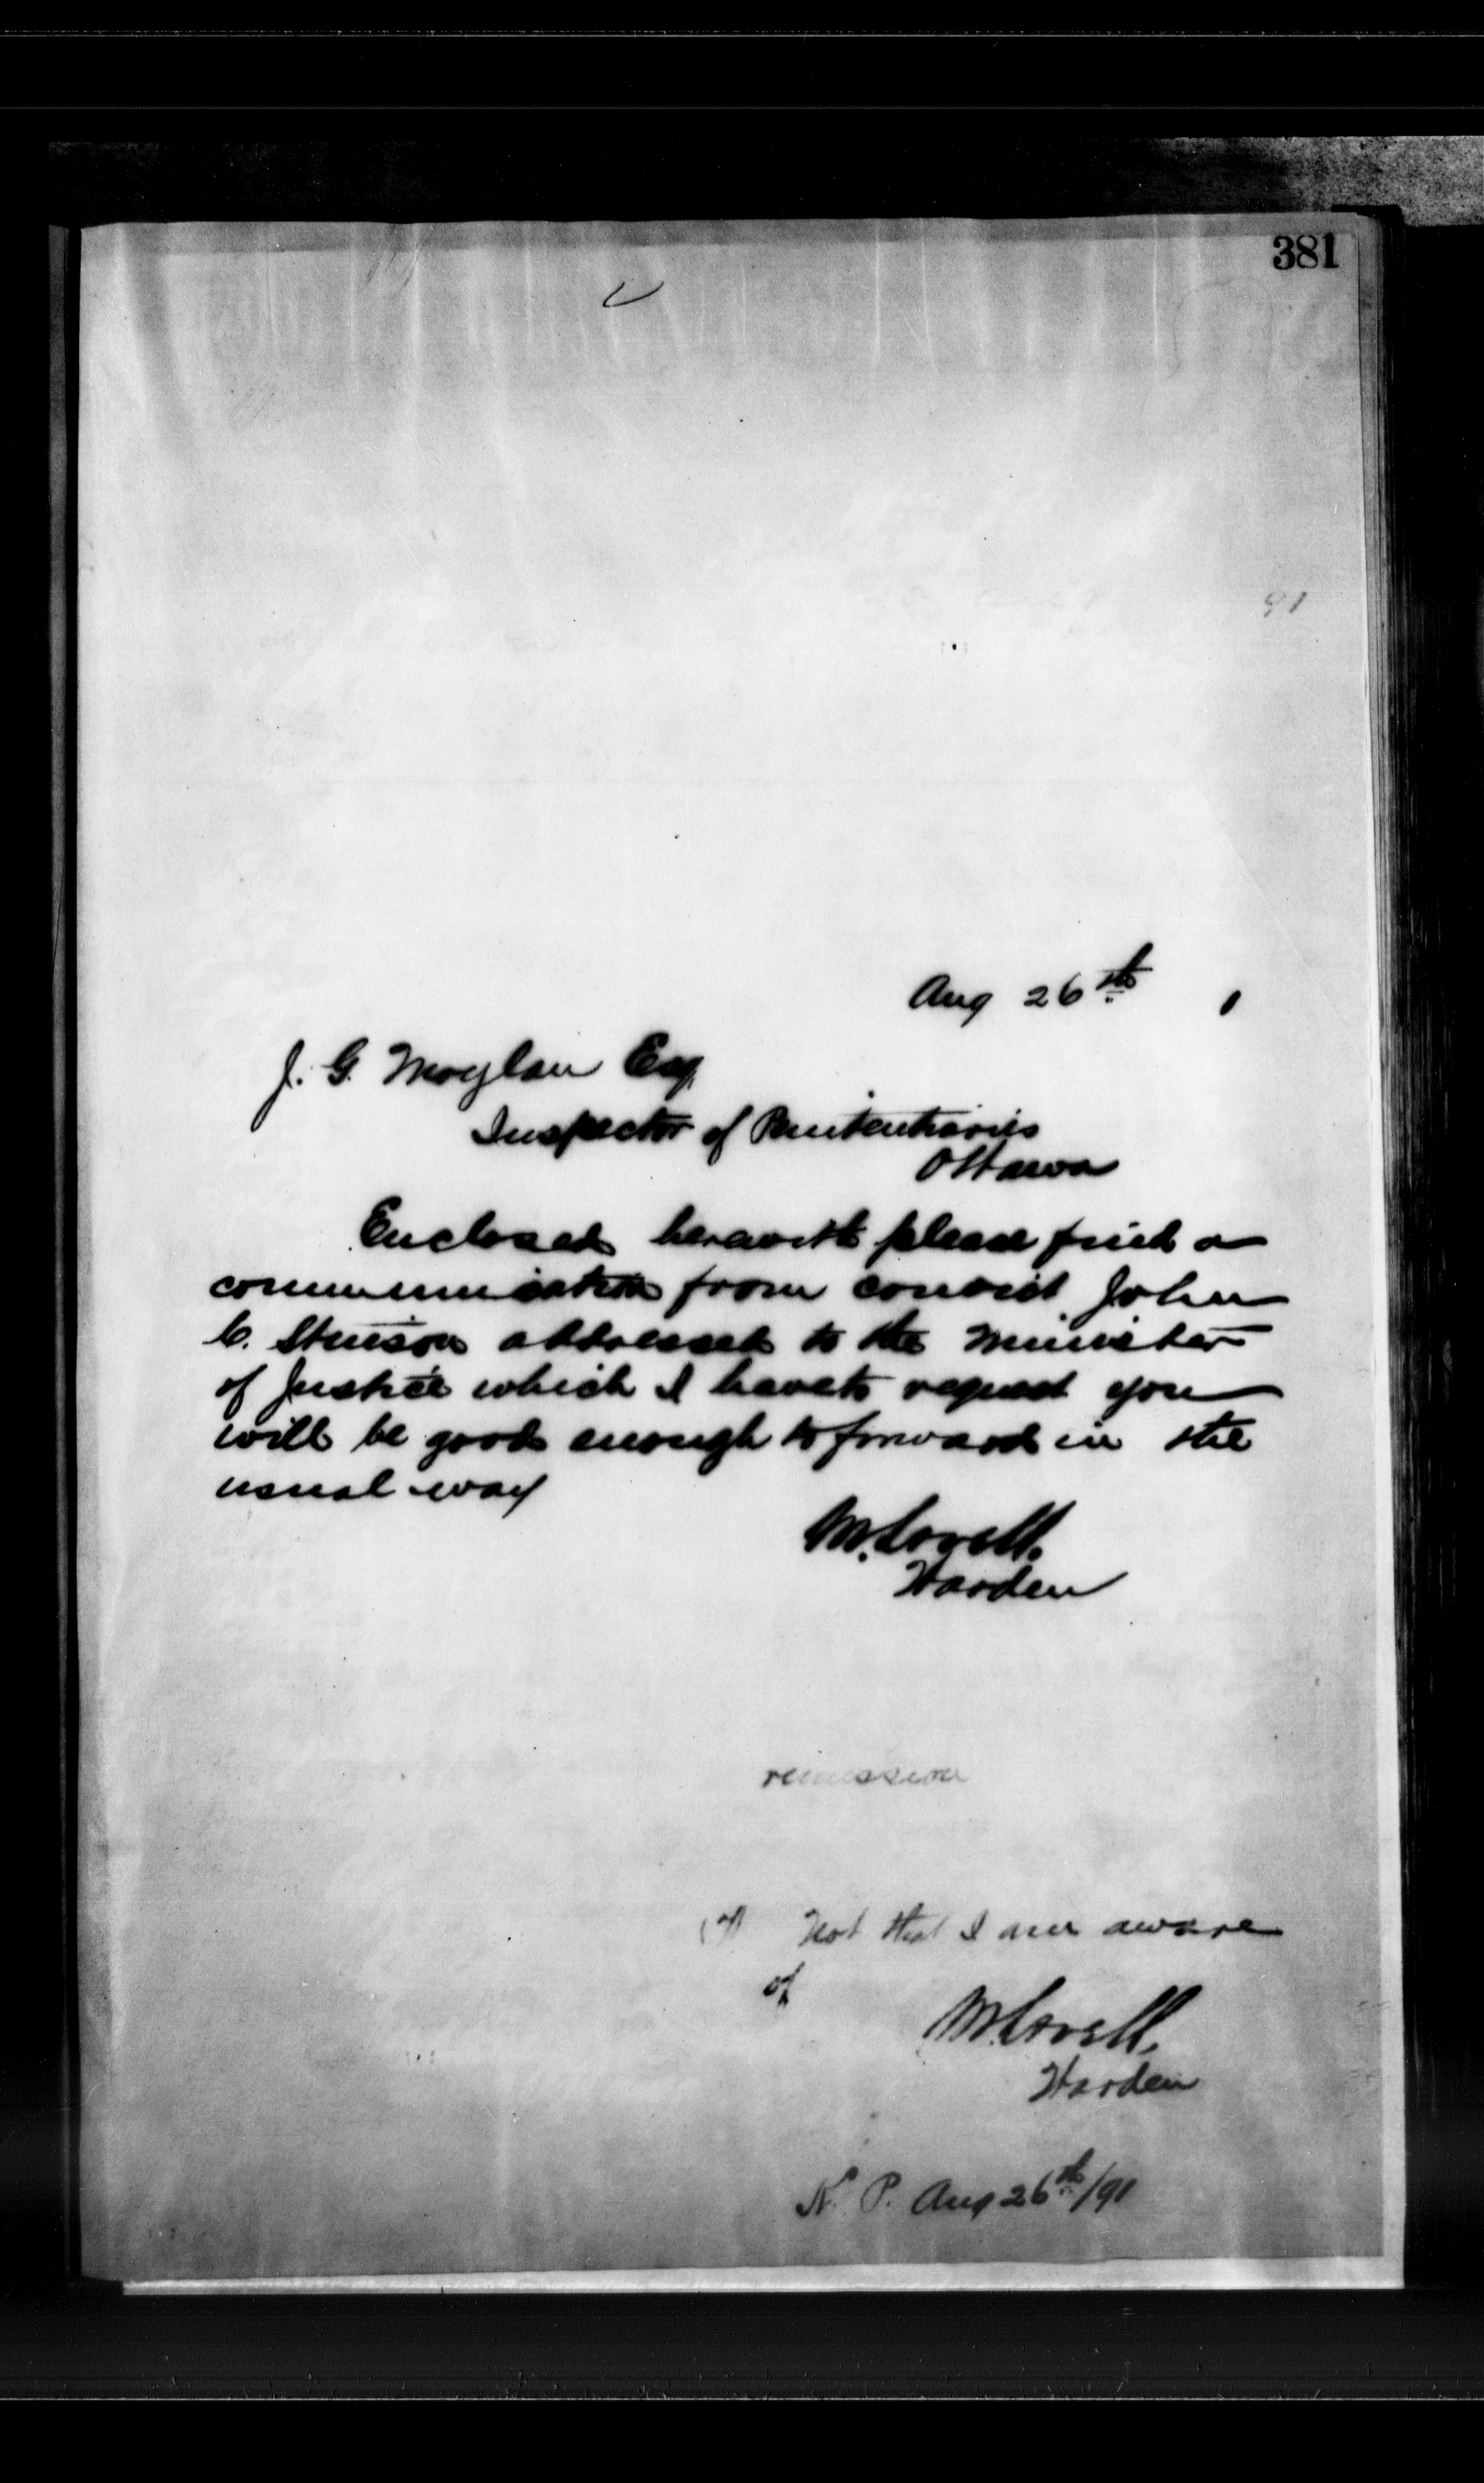 381
91
Aug 26th 1
J. G. Moylan Esq
Inspector of Penitentiaries
Ottawa
Enclosed herewith please find a
communication from convict John
C. Stinson addressed to the Minister
of Justice which I have to request you
will be good enough to forward in the
usual way
M. Lavell.
Warden
remission
Not that I am aware
of
M. Lavell.
Warden
K. P. Aug 26th/91